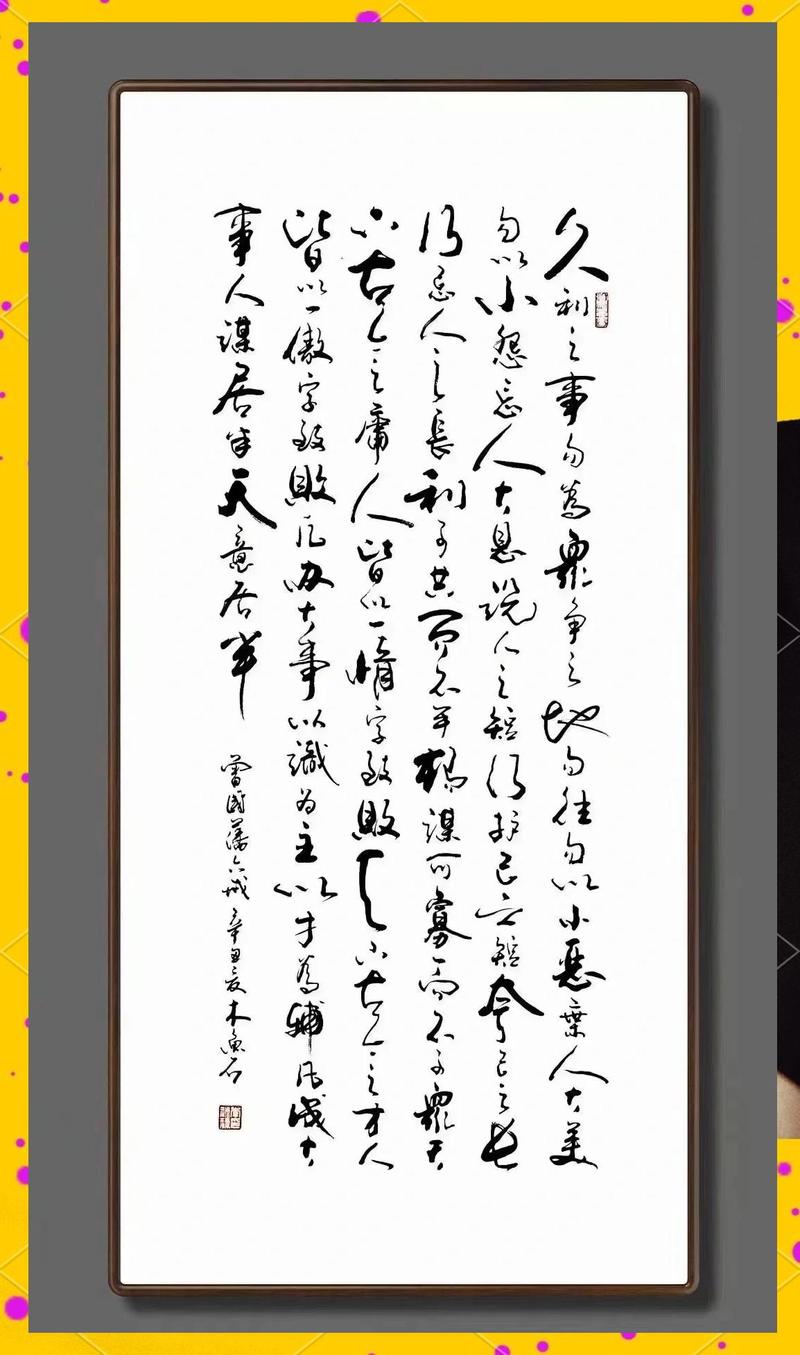 久利之事勿為衆爭之地勿往勿以小惡棄人大美
勿以小怨忘人大恩説人之短乃护己之短夸己之长
乃忌人之長利可共而不可獨謀可寡而不可衆天
下古今之庸人皆以一惰字致敗天下古今之才人
皆以一傲字致敗凡办大事以識为主以才為輔凡成大
事人謀居半天意居半
曾國藩六戒辛丑夏木魚石